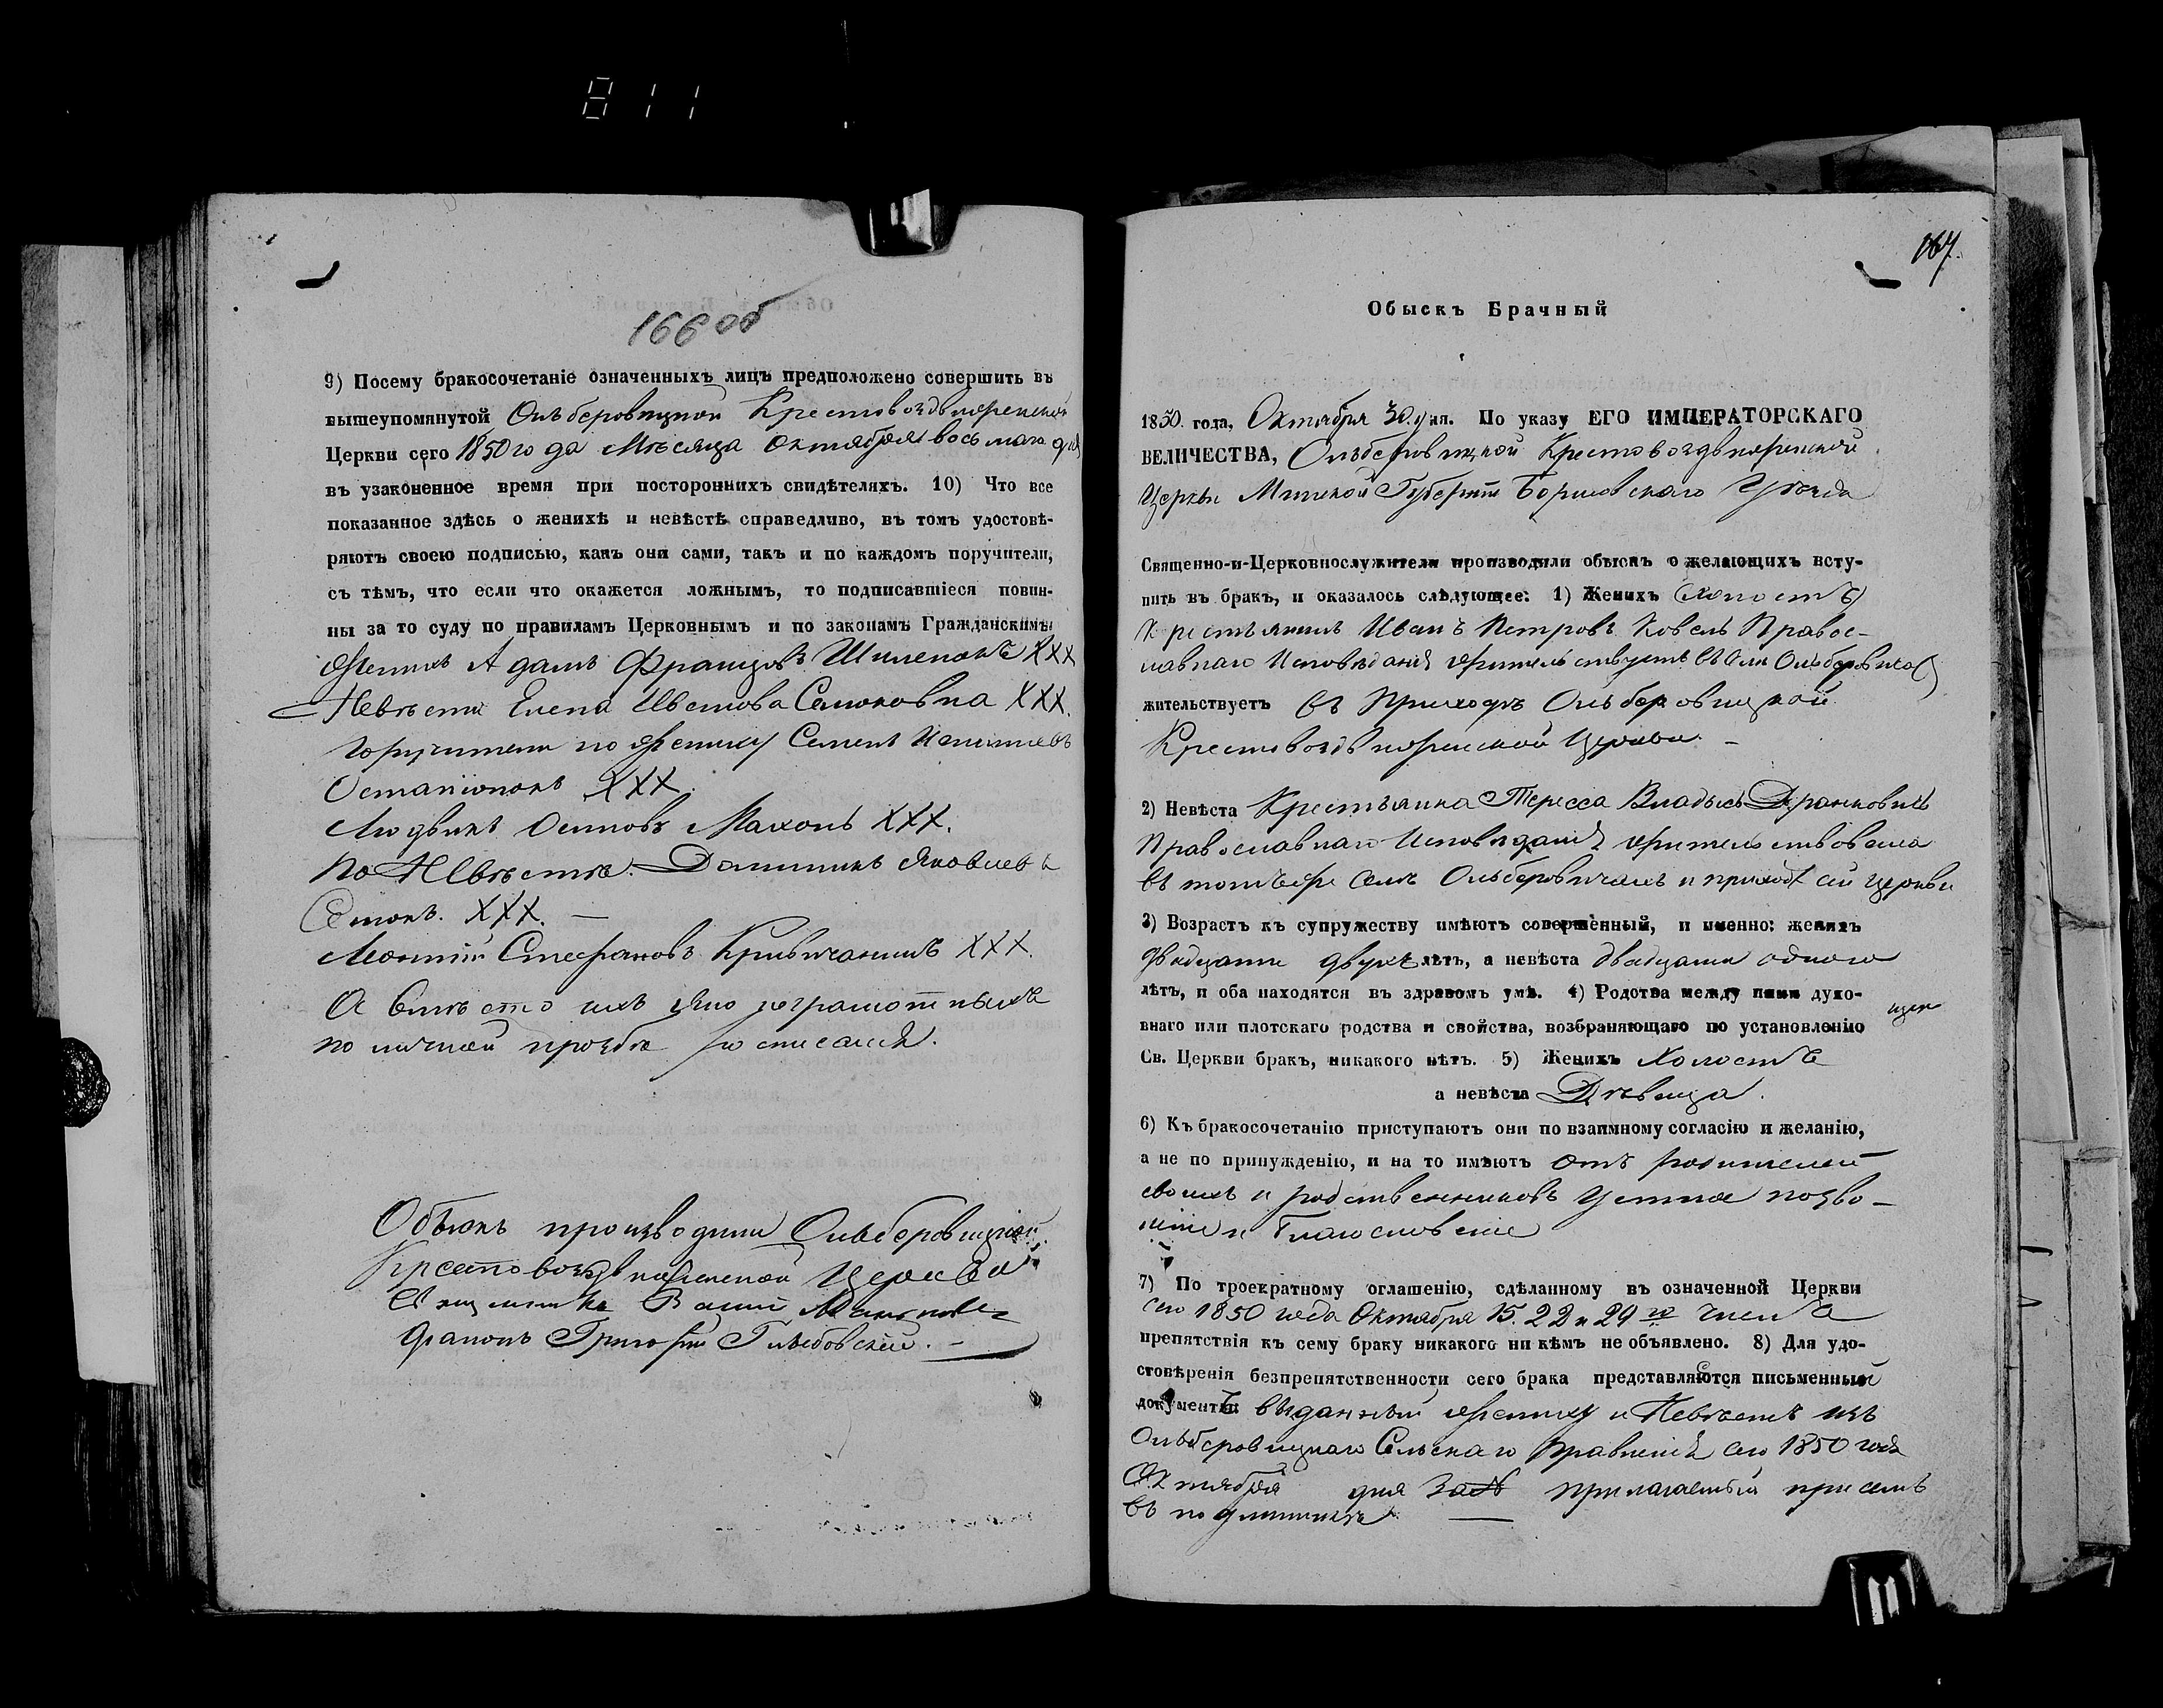 811
166 об
9) Посему бракосочетаніе означенныхъ лицъ предположено совершить въ
вышеупомянутой Ольберовицкой Крестовоздвиженской
Церкви сего 1850 года Мѣсяца Октября восьмаго дня
въ узаконенное время при постороннихъ свидѣтеляхъ. 10) Что все
показанное здѣсь о женихѣ и невѣстѣ справедливо, въ томъ удостовѣ-
ряютъ своею подписью, какъ они сами, такъ и по каждомъ поручители,
съ тѣмъ, что если что окажется ложнымъ, то подписавшіеся повин-
ны за то суду по правиламъ Церковнымъ и по законамъ Гражданскимъ
Женихъ Адамъ Францовъ XXX
Невѣста Елена XXX.
Поручители по жениху Семенъ
XXX.
Людвикъ Осиповъ Махонь XXX.
По Невѣстѣ. Доминикъ Яковлевъ
XXX.
Стефановъ Кривичанинъ XXX.
А вмѣсто ихъ неграмотныхъ
по личной прозбѣ
Обыскъ производили Ольберовицкой
Крестовоздвиженской Церкви
Григорій
167.
Обыскъ Брачный
1850. года, Октября 30. дня. По указу ЕГО ИМПЕРАТОРСКАГО
ВЕЛИЧЕСТВА, Ольберовицкой Крестовоздвиженской
Церкви Минской Губерніи Борисовскаго Уѣзда
Священно-и-Церковнослужители производили обыскъ о желающихъ всту-
пить въ бракъ, и оказалось слѣдующее: 1) Женихъ (Холостъ)
Крестьянинъ Иванъ Петровъ Ковель Правос-
лавнаго Исповѣданія жительствуетъ въ селѣ Ольберовичах)
жительствуетъ въ Приходѣ Ольберовицкой
Крестовоздвиженской Церкви. –
2) Невѣста Крестьянка Тересса
Православнаго Исповѣданія жительствовала
въ томъ же селѣ Ольберовичахъ и приходѣ сей церкви
3) Возрастъ къ супружеству имѣютъ совершенный, и именно: женихъ
двадцати двухъ лѣтъ, а невѣста двадцати одного
лѣтъ, и оба находятся въ здравомъ умѣ. 4) Родства между ними духо-
внаго или плотскаго родства и свойства, возбраняющаго по установленію
Св. Церкви бракъ, никакого нѣтъ. 5) Женихъ Холостъ
а невѣста Дѣвица.
6) Къ бракосочетанію приступаютъ они по взаимному согласію и желанію,
а не по принужденію, и на то имѣютъ отъ родителей
своихъ и родственниковъ устное позво-
леніе и Благословеніе
7) По троекратному оглашенію, сдѣланному въ означенной Церкви
сего 1850 года Октября 15. 22 и 29 го числа
препятствія къ сему браку никакого ни кѣмъ не объявлено. 8) Для удо-
стовѣренія безпрепятственности сего брака представляются письменный
документъ выданный жениху и Невѣстѣ изъ
Ольберовицкаго Сельскаго Правленія сего 1850 года
Октября дня за № прилагаемый при семъ
въ подлинникѣ. —